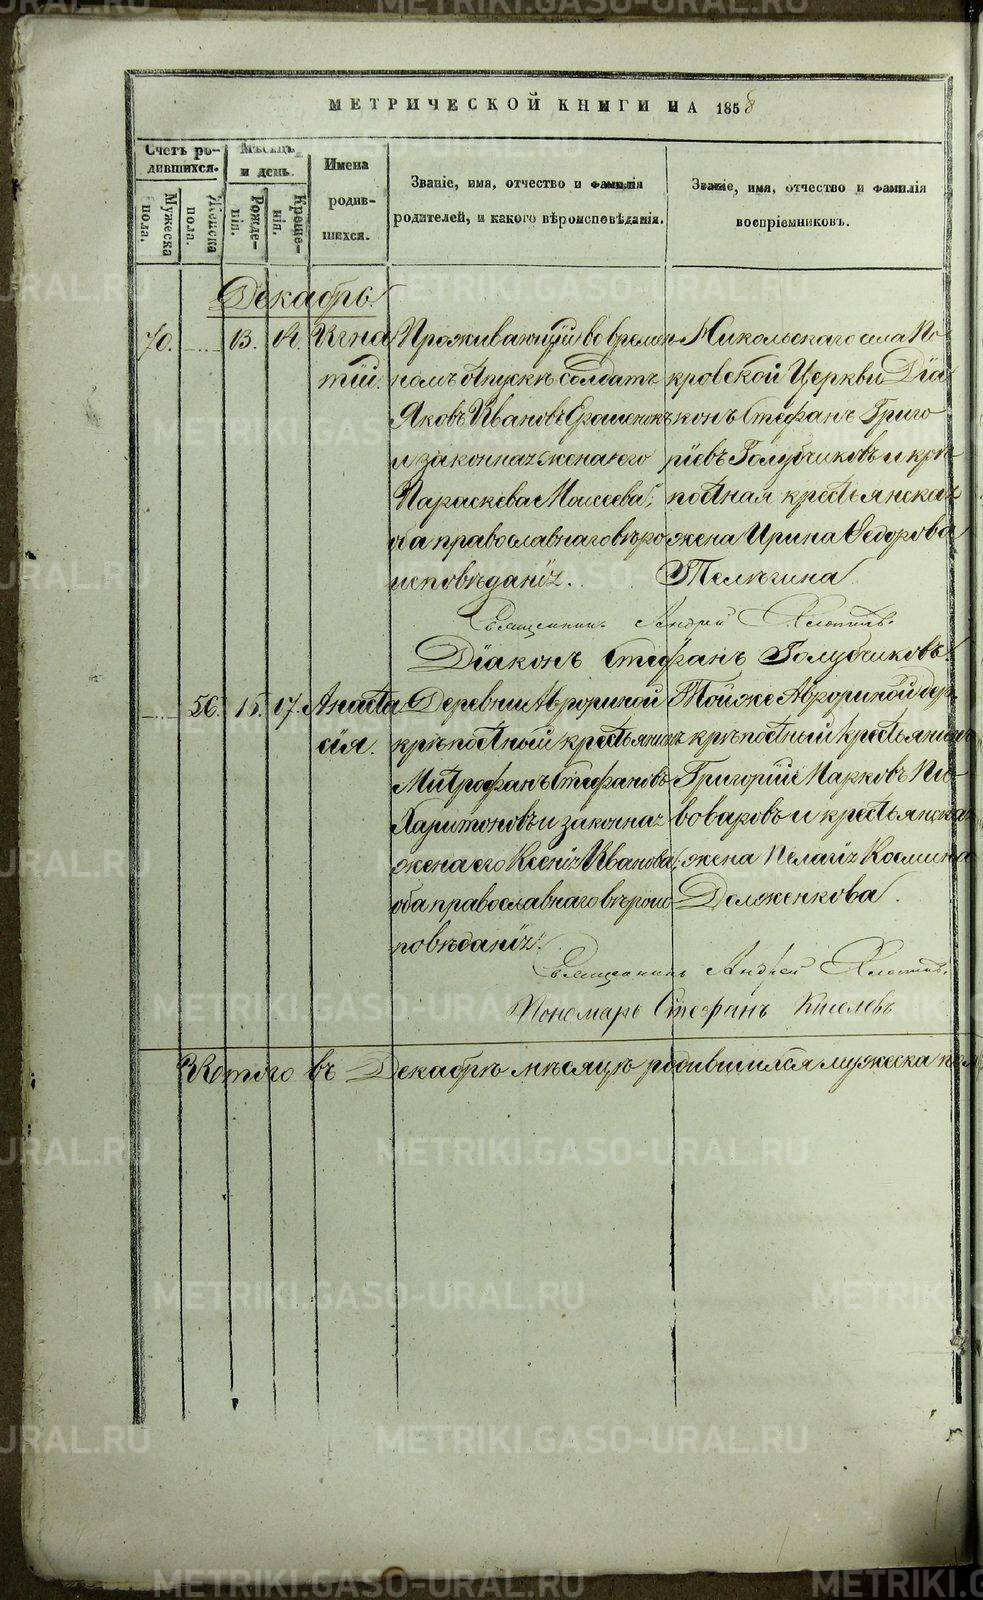 МЕТРИЧЕСКОЙ КНИГИ НА 1858
Счетъ ро-
дившихся.
Мужеска
пола.
Женска
пола.
Мѣсяцъ
и день.
Рожде-
нія.
Креще-
нія.
Имена
родив-
шихся.
Званіе, имя, отчество и фамилія
родителей, и какого вѣроисповѣданія.
Званіе, имя, отчество и фамилія
воспріемниковъ.
Декабрь.
70. 13. 14. Игна
тій.
Проживающій во времен
номъ отпускѣ солдатъ
Яковъ Ивановъ
и законная жена его
Параскева Моисеева,
оба православнаго вѣро
исповѣданія.
Никольскаго села По
кровской Церкви Діа
конъ Стефанъ Григо
ріевъ Голубчиковъ и крѣ
постная крестьянская
жена Ирина Ѳедорова
Телѣгина
Священникъ Андрей
Діаконъ Стефанъ Голубчиковъ.
56. 15. 17. Анаста
сія.
Деревни Аврориной
крѣпостный крестьянинъ
Митрофанъ Стефановъ
Харитоновъ и законная
жена его Ксенія Иванова,
оба православнаго вѣроис
повѣданія.
Той же Авророриной дер.
крѣпостный крестьянинъ
Григорій Марковъ Пи
воваровъ и крестьянская
жена Пелагія Космина
Долженкова.
Священникъ Андрей
Пономарь Стефанъ Киселевъ
Итого въ Декабрѣ мѣсяцѣ родившихся мужеска пол
METRIKI.GASO-URAL.RU